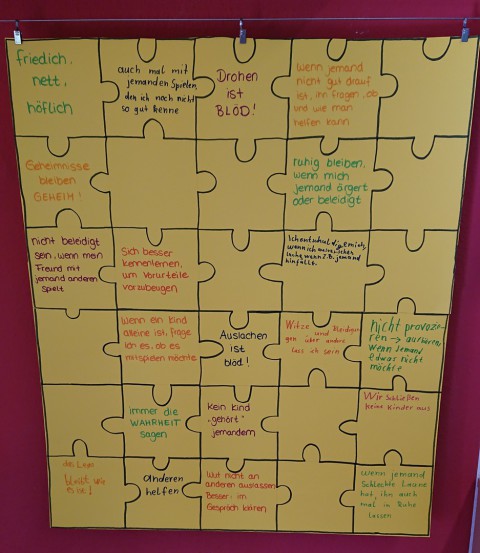 friedich,
nett,
höflich
auch mal mit
jemanden Spielen,
den ich noch nicht
so gut kenne
Drohen
ist
BLÖD!
wenn jemand
nicht gut drauf
ist, ihn fragen, ob
und wie man
helfen kann
Geheimnisse
bleiben
GEHEIM!
ruhig bleiben,
wenn mich
jemand ärgert
oder beleidigt
nicht beleidigt
sein, wenn mein
Freund mit
jemand anderen
spielt
Sich besser
kennenlernen,
um Vorurteile
vorzubeugen
Ich entschuldige mich,
wenn ich
lache, wenn z.B. jemand
hinfällt.
Wenn ein Kind
alleine ist, frage
ich es, ob es
mitspielen möchte
Auslachen
ist
blöd!
Witze und Beleidigun
gen über andere
lass ich sein
nicht provozie-
ren → aufhören,
wenn jemand
etwas nicht
möchte
immer die
WAHRHEIT
sagen
Kein Kind
"gehört"
jemandem
Wir schließen
keine Kinder aus
das Lego
bleibt wie
es ist!
anderen
helfen
Wut nicht an
anderen auslassen
Besser: im
Gespräch klären
wenn jemand
Schlechte Laune
hat, ihn auch
mal in Ruhe
lassen